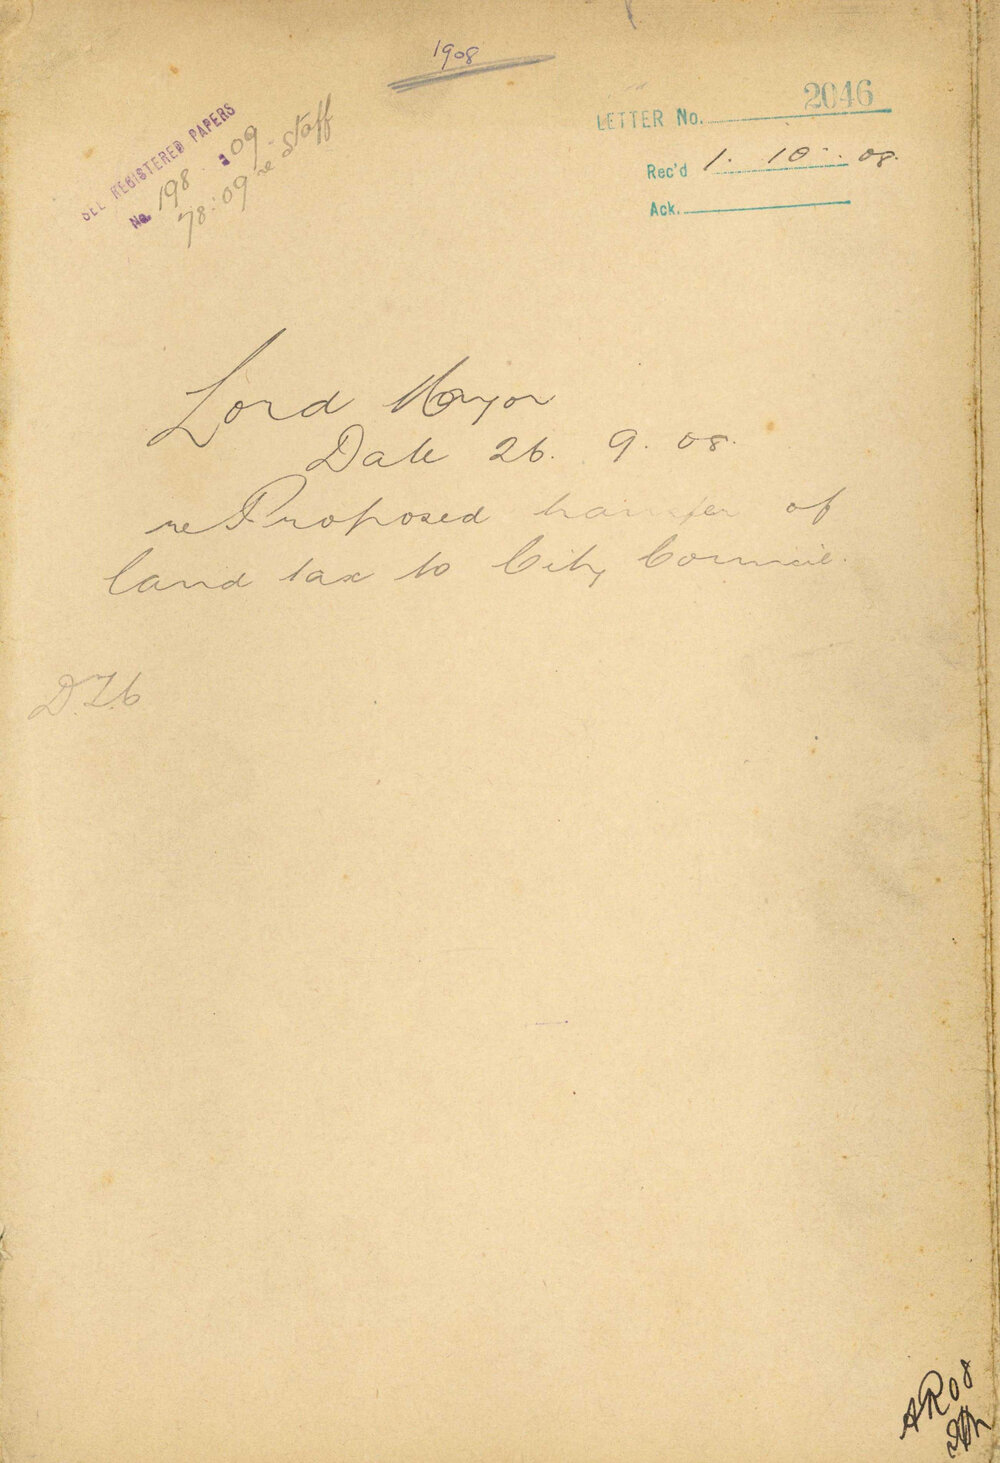 1908
SEE REGISTERED PAPERS
No. 198:09-
78:09 re Staff
LETTER No. 2046
Rec'd 1. 10. 08.
Ack.
Lord Mayor
Date 26. 9. 08.
re Proposed transfer of
land tax to City Council.
AR 08